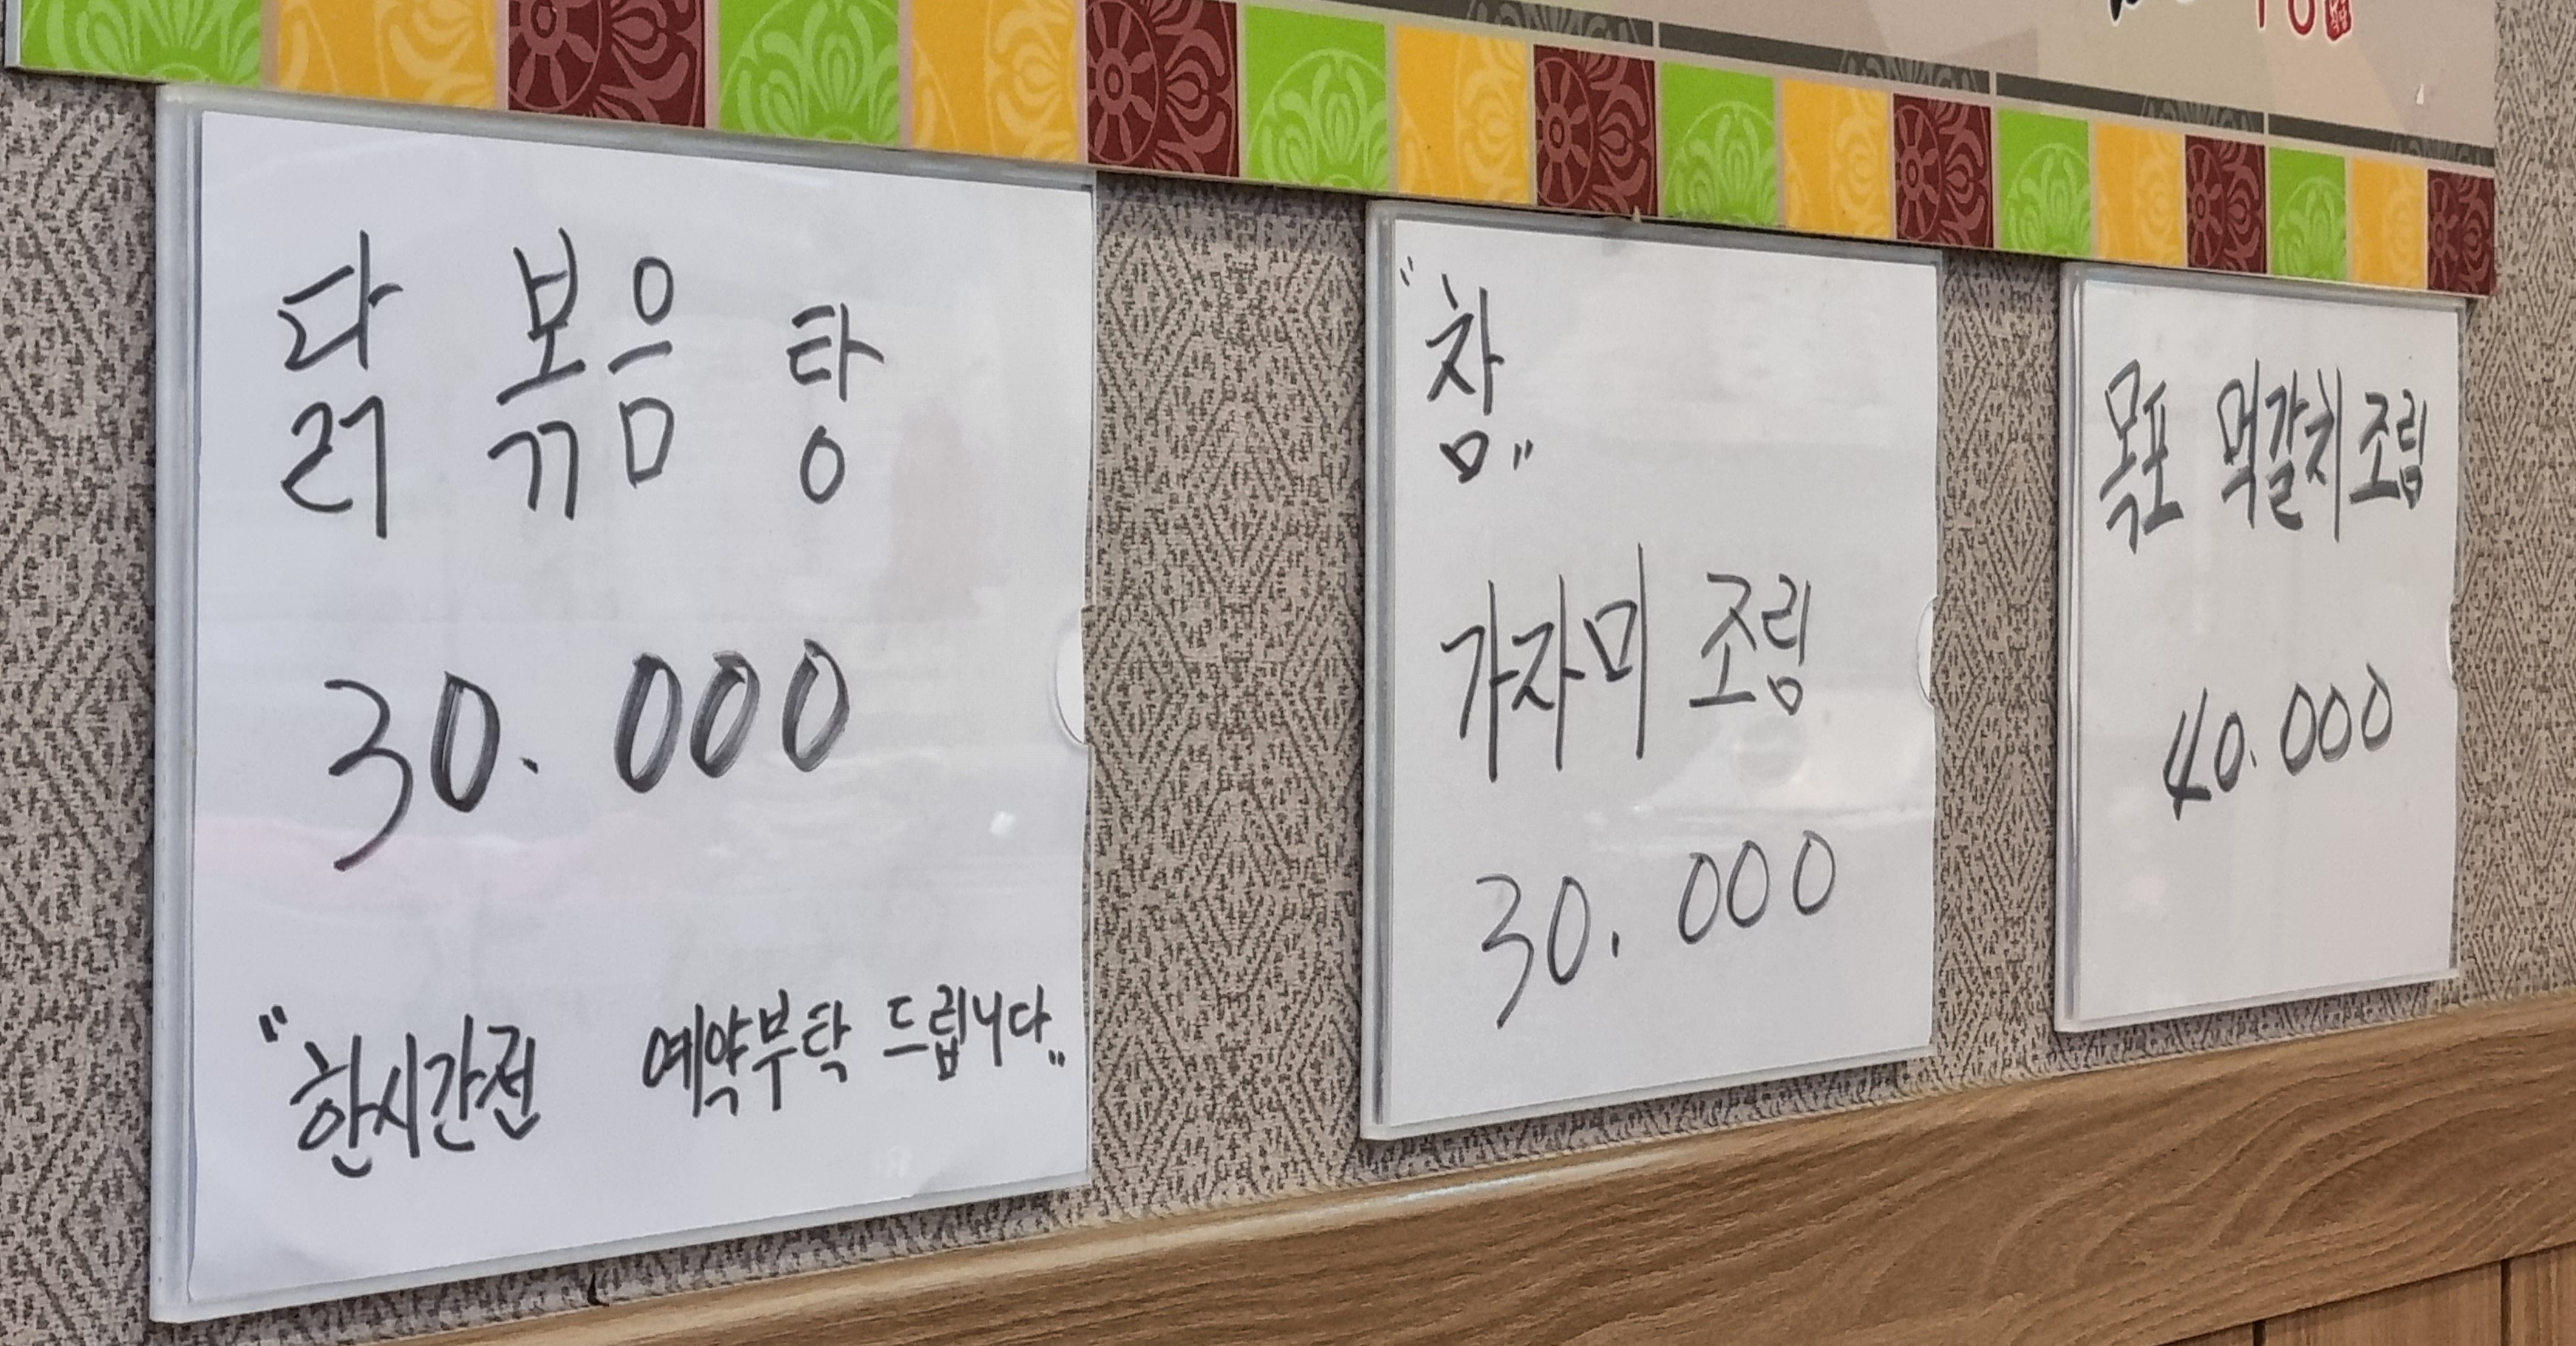 닭 볶음 탕
30.000
"한시간전 예약부탁 드립니다"
"참"
가자미 조림
30.000
목포 먹갈치조림
40.000